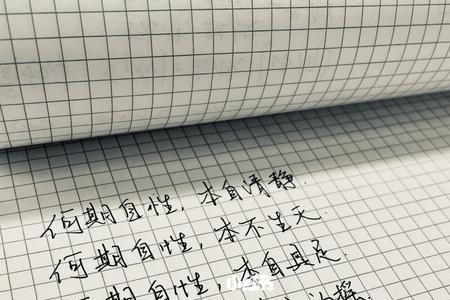 何期自性,本自清静.
何期自性,本不生灭.
期自性,本自具足.
摇.
小红书